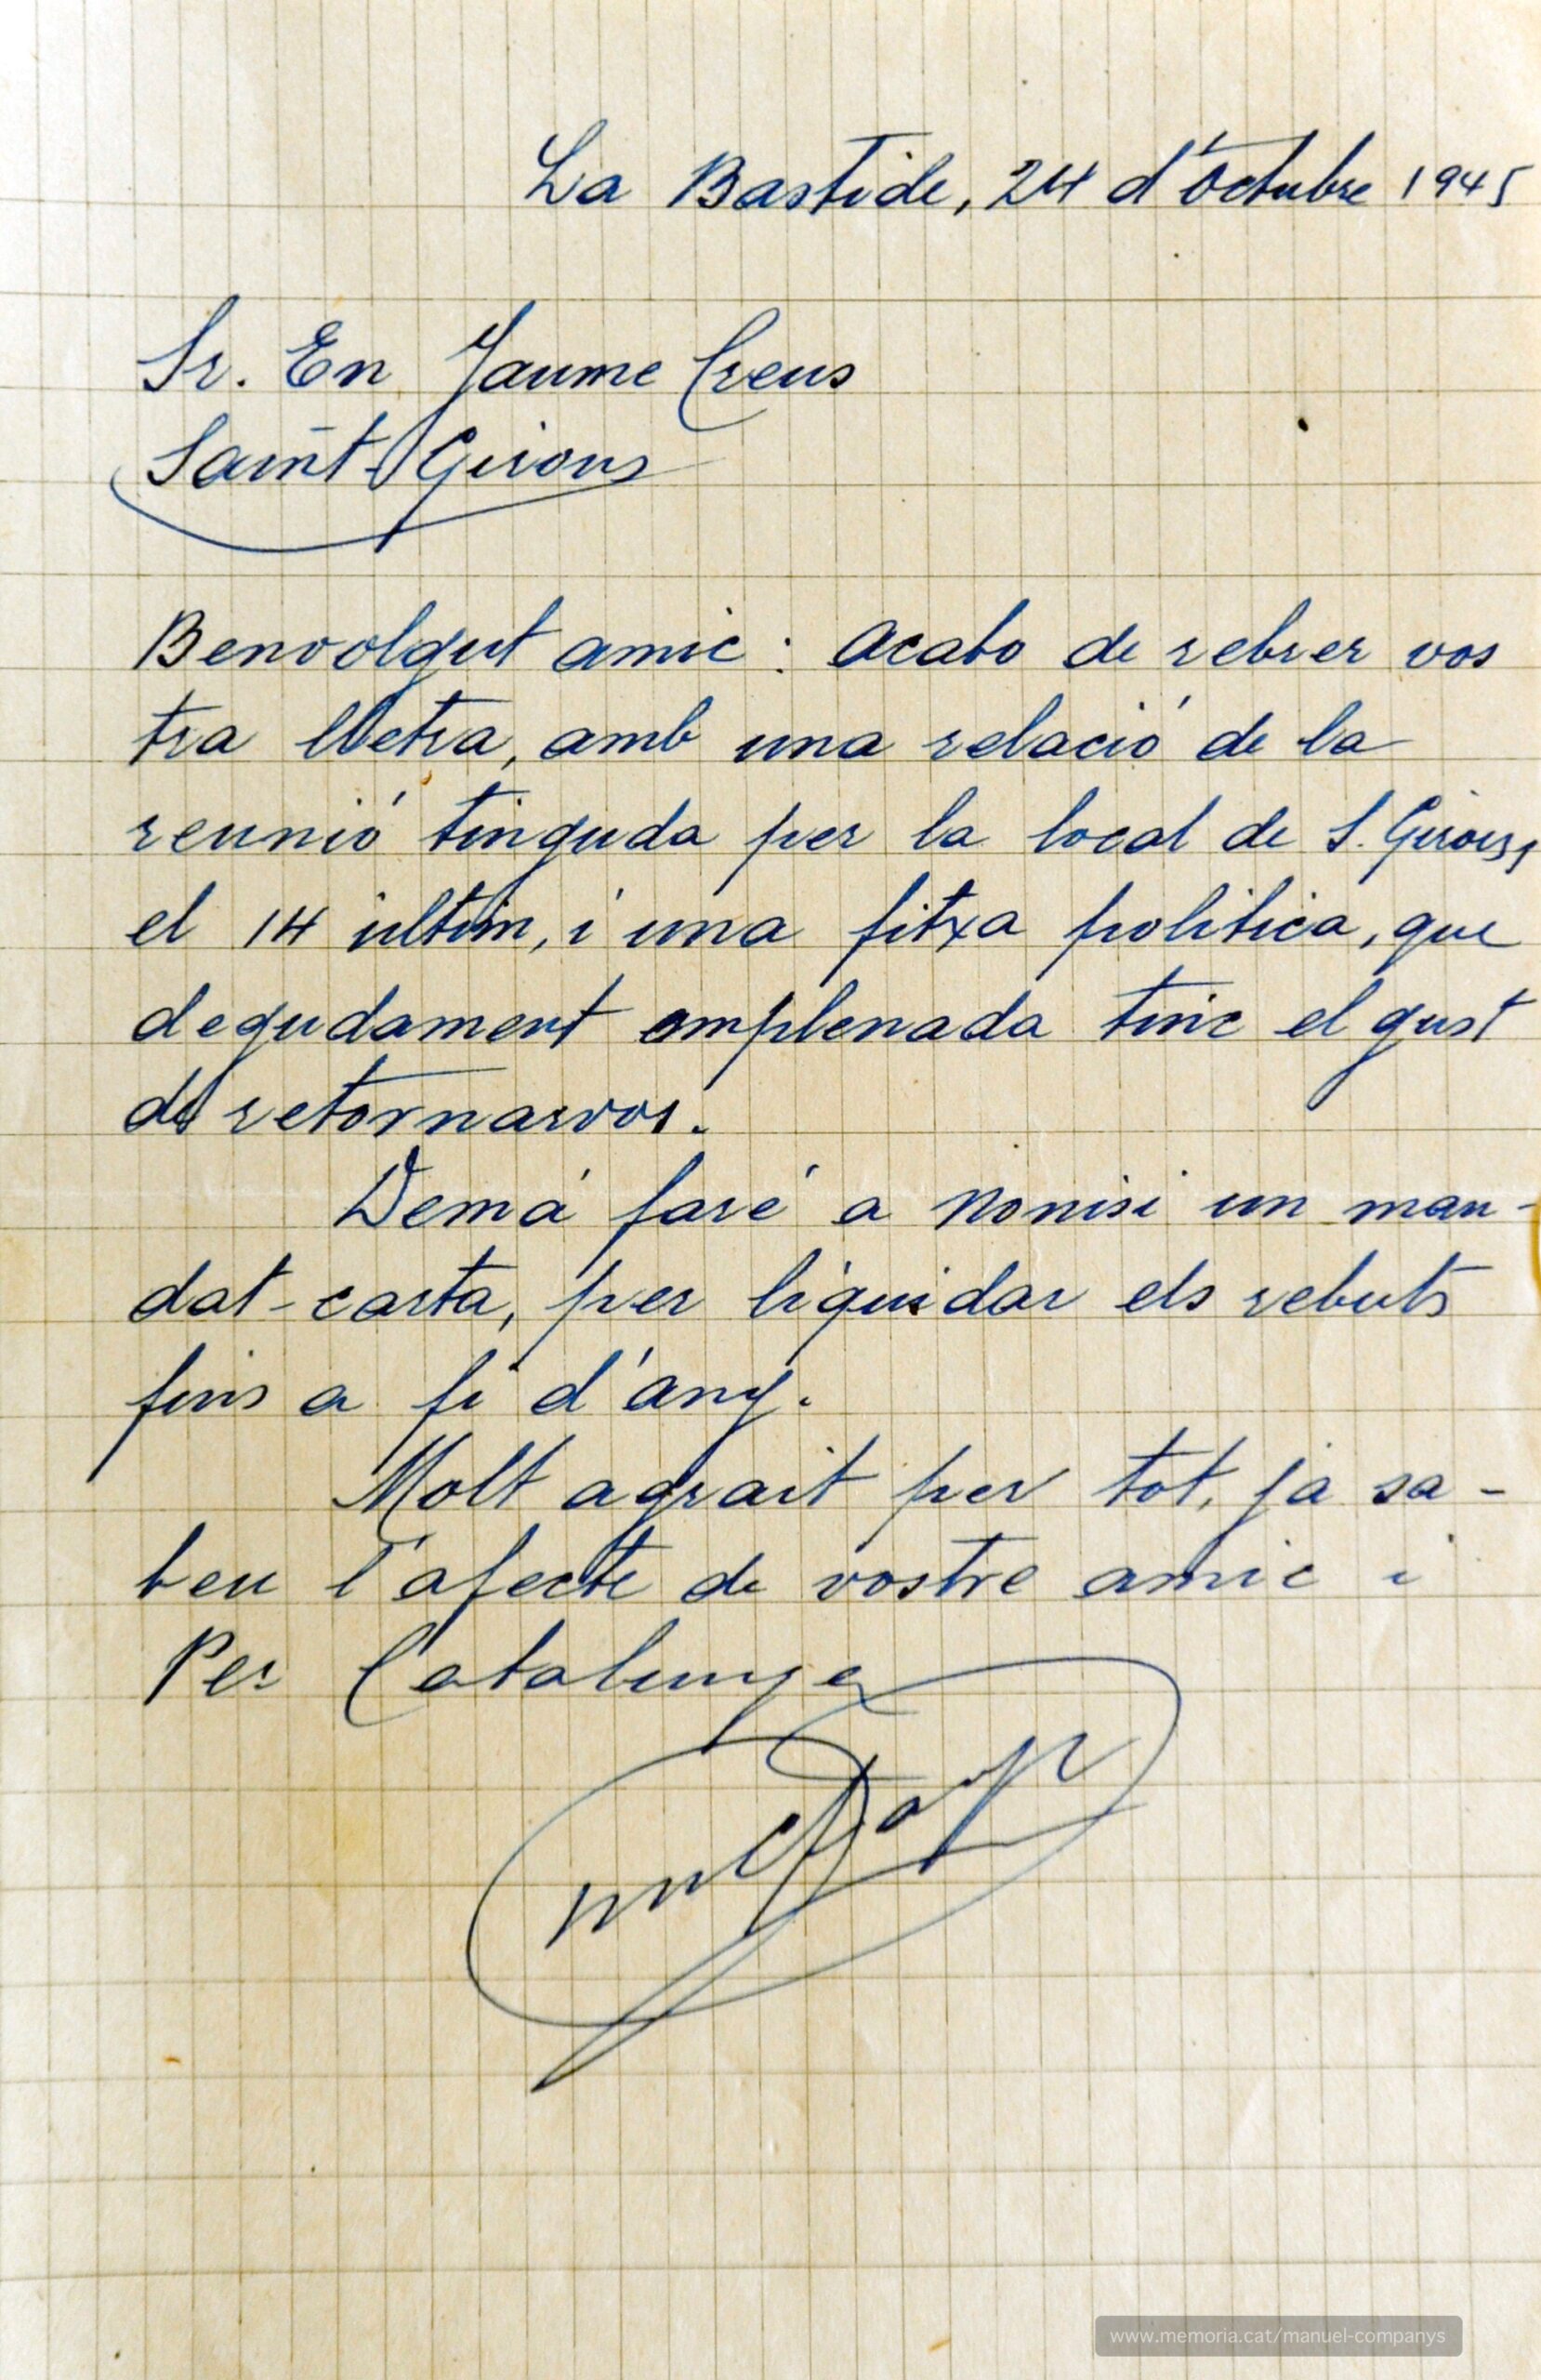 La Bastide, 24 d'Octubre 1945
Sr. En Jaume Creus
Saint-Girons
Benvolgut amic: Acabo de rebrer vos
tra lletra, amb una relació de la
reunió tinguda per la local de S. Girons,
el 14 últim, i una fitxa politica, que
degudament omplenada tinc el gust
de retornarvos.
Demá faré a Monisi un man-
dat-carta, per liquidar els rebuts
fins a fi d'any.
Molt agrait per tot, ja sa-
beu l'afecte de vostre amic i
Per Catalunya
www.memoria.cat/manuel-companys